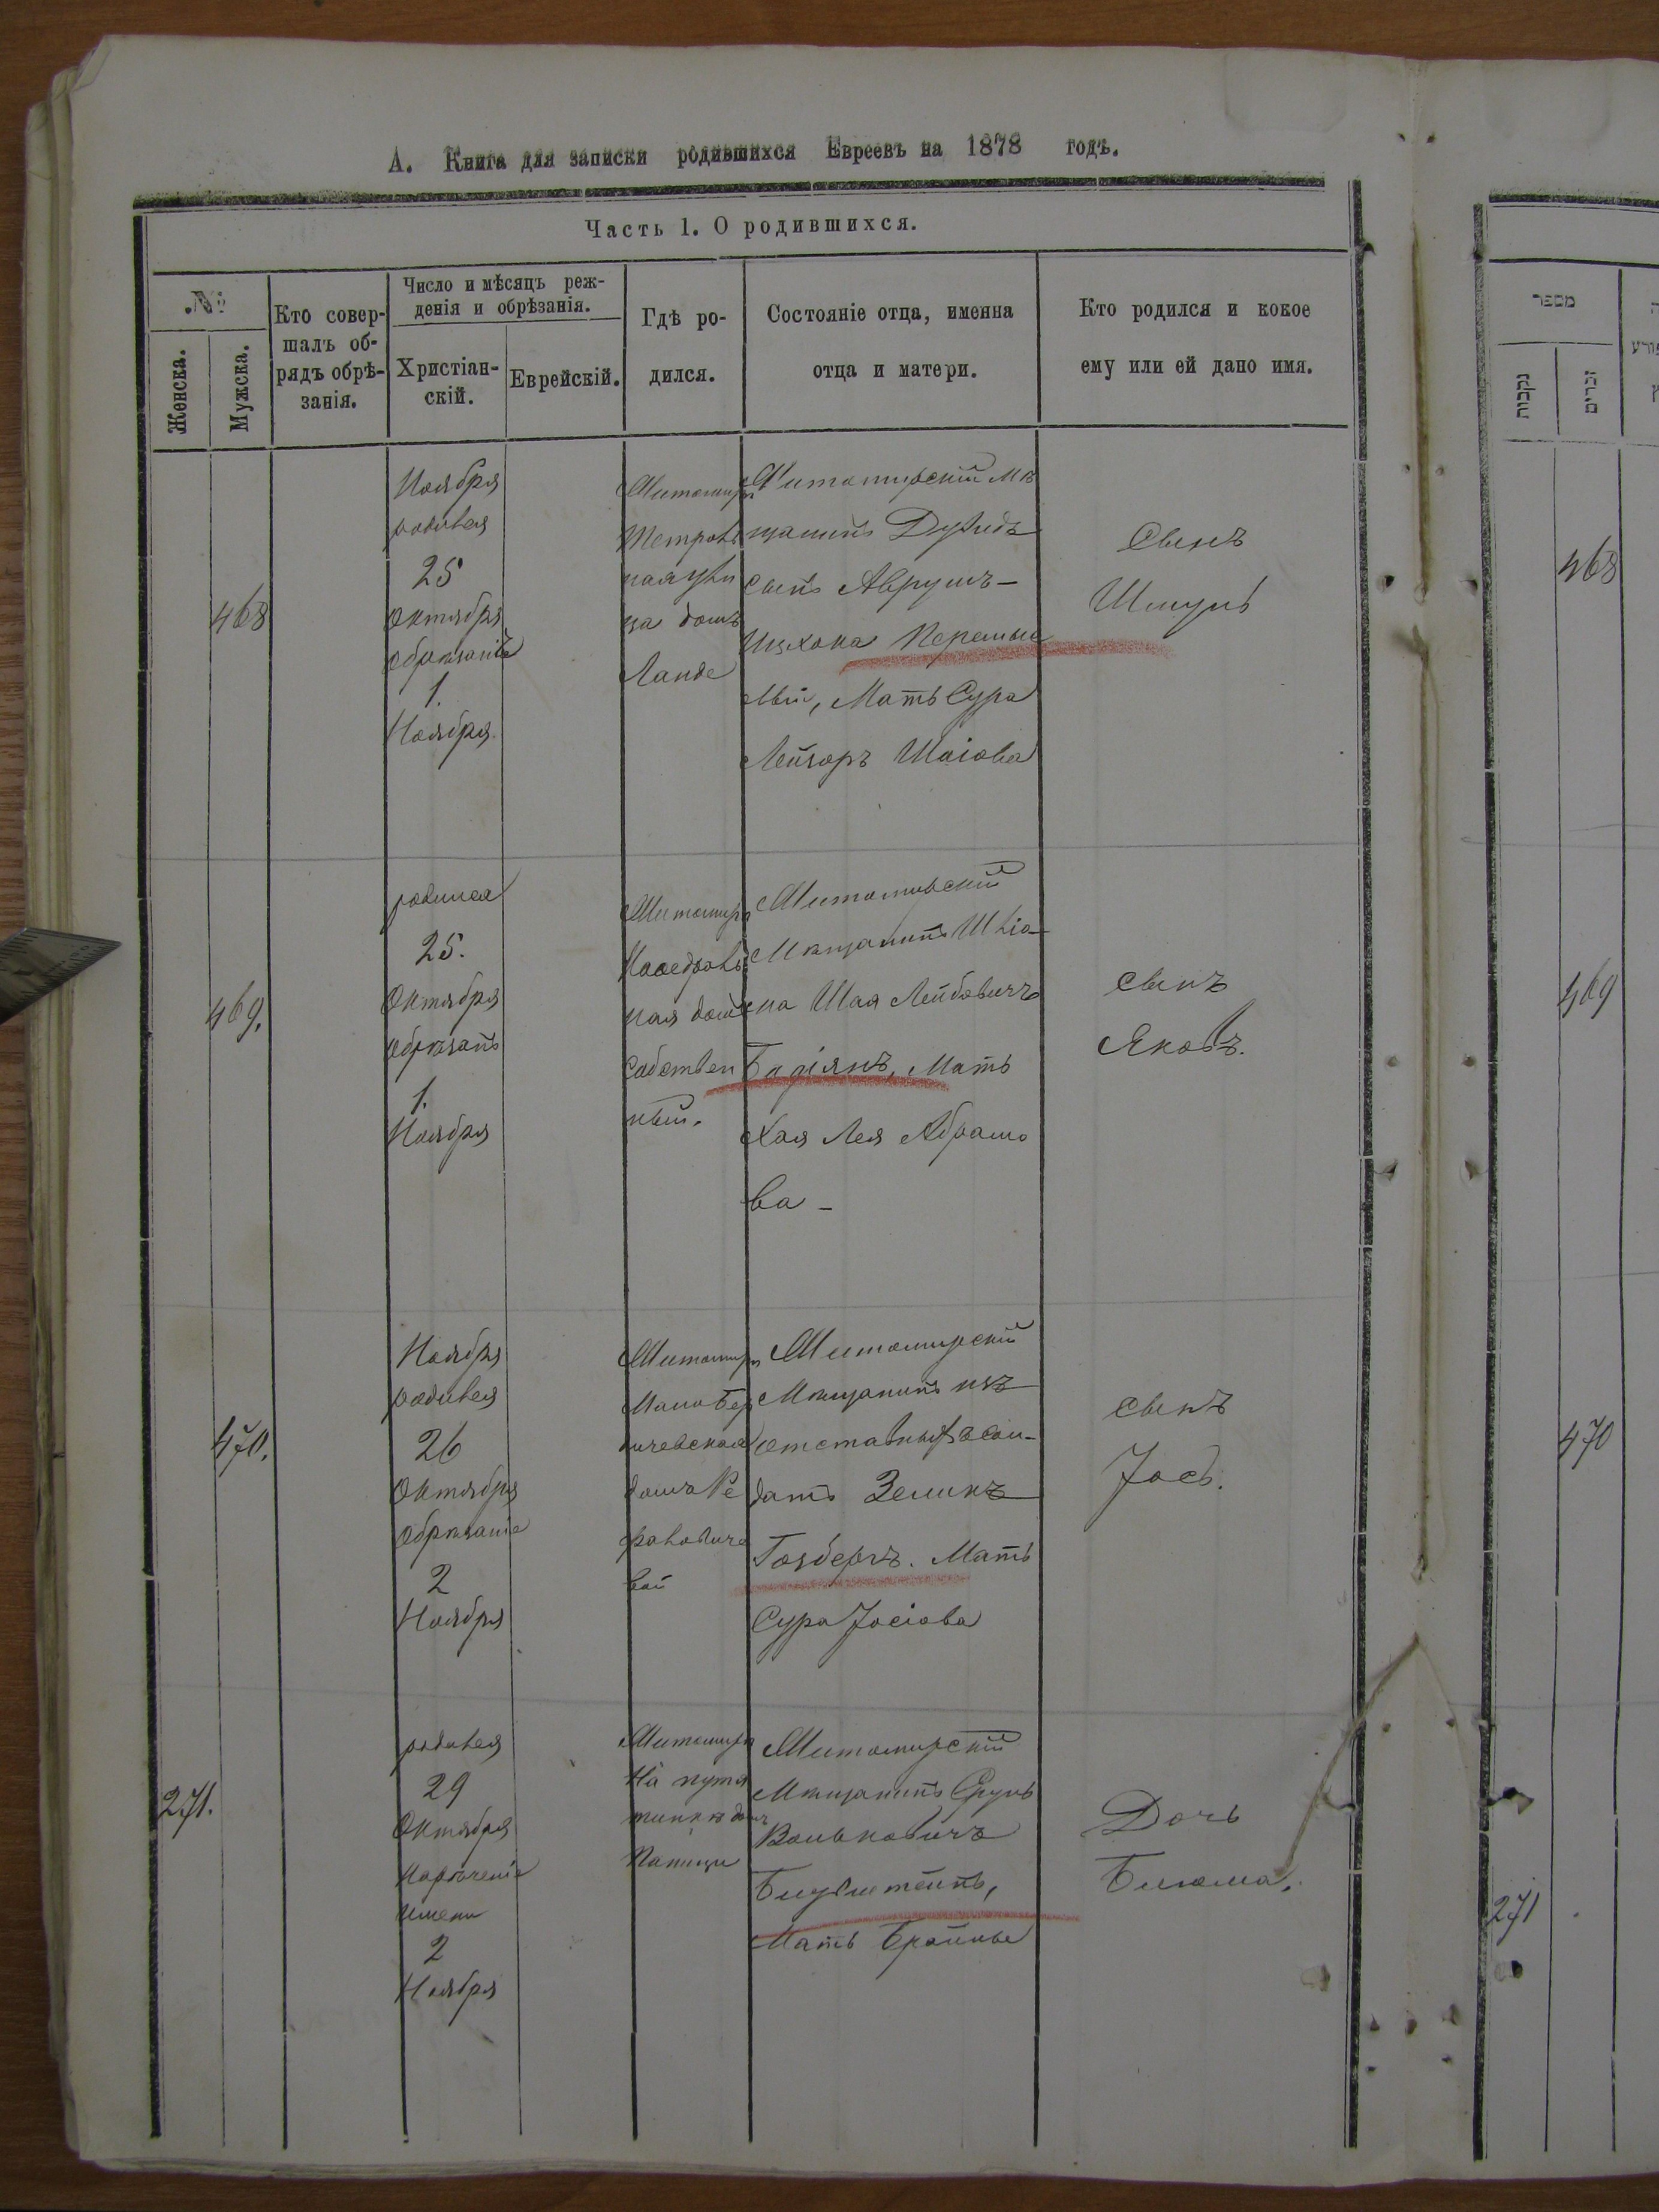 А. Книга для записки родившихся Евреевъ на 1878 годъ.
Часть 1. О родившихся.
№
Женска.
Мужска.
Кто совер-
шалъ об-
рядъ обрѣ-
занія.
Число и мѣсяцъ реж-
денія и обрѣзанія.
Христіан-
скій.
Еврейскій.
Гдѣ ро-
дился.
Состояніе отца, именна
отца и матери.
Кто родился и кокое
ему или ей дано имя.
468
Ноября
родився
25
Октября
Обрѣзаніе
1.
Ноября
Житомиръ
ная ули
ца домъ
Ланде
Житомирскій мѣ
щанинъ Дувидъ
сынъ Аврумъ-
Ицхока
Мать Сура
Лейзоръ Шаіова
Сынъ
Шмуль
469.
родился
25.
Октября
Обрѣзанъ
1.
Ноября
Житомиръ
ная домъ
Собствен
ный.
Житомирскій
Мѣщанинъ
Шая Лейбовичъ
Мать
Хая Лея Абрамо
ва -
сынъ
Яковъ.
470.
Ноября
родився
26
Октября
Обрѣзаніе
2
Ноября
Житомиръ
Мало Бер
дичевская
домъ
вой
Житомирскій
Мѣщанинъ изъ
отставныхъ сол-
датъ Зеликъ
Гозберъ. Мать
Сура Іосіова
сынъ
Іось.
271.
родився
29
Октября
Нарѣченіе
имени
2
Ноября
Житомиръ
На путя
тинкѣ домъ
Житомирскій
Мѣщанинъ Сруль
Вольковичъ
Мать
Дочь
מספר
נקבות
זכרים
468
469
470
271